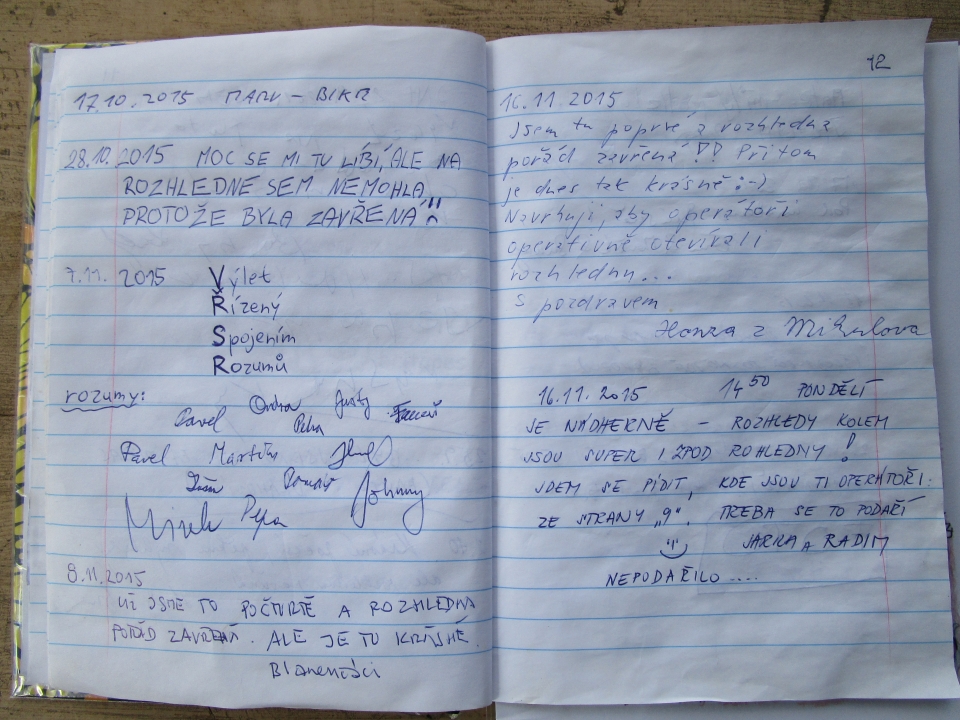 17.10.2015 MARV - BIKR
28.10.2015 MOC SE MI TU LÍBÍ, ALE NA
ROZHLEDNĚ SEM NEMOHLA,
PROTOŽE BYLA ZAVŘENÁ
7.11. 2015 Výlet
Řízený
Spojením
Rozumů
rozumy:
Pavel Ondra Justy
Petra
Pavel Martin
Tomáš Johnny
Mirek Pepa
8.11.2015
UŽ JSME TU POČTVRTÉ A ROZHLEDNA
POŘÁD ZAVŘENÁ. ALE JE TU KRÁSNĚ.
Blanenšáci
12
16.11.2015
Jsem tu poprvé a rozhledna
pořád zavřená!! Přitom
je dnes tak krásně :-)
Navrhuji, aby operátoři
operativně otevírali
rozhlednu...
S pozdravem
Honza z Mikulova
16.11.2015 14 50 PONDĚLÍ
JE NÁDHERNĚ - ROZHLEDY KOLEM
JSOU SUPER I ZPOD ROHLEDNY!
JDEM SE PÍDIT, KDE JSOU TI OPERÁTOŘI
ZE STRANY „9". TŘEBA SE TO PODAŘÍ
JARKA A RADIM
NEPODAŘILO ....